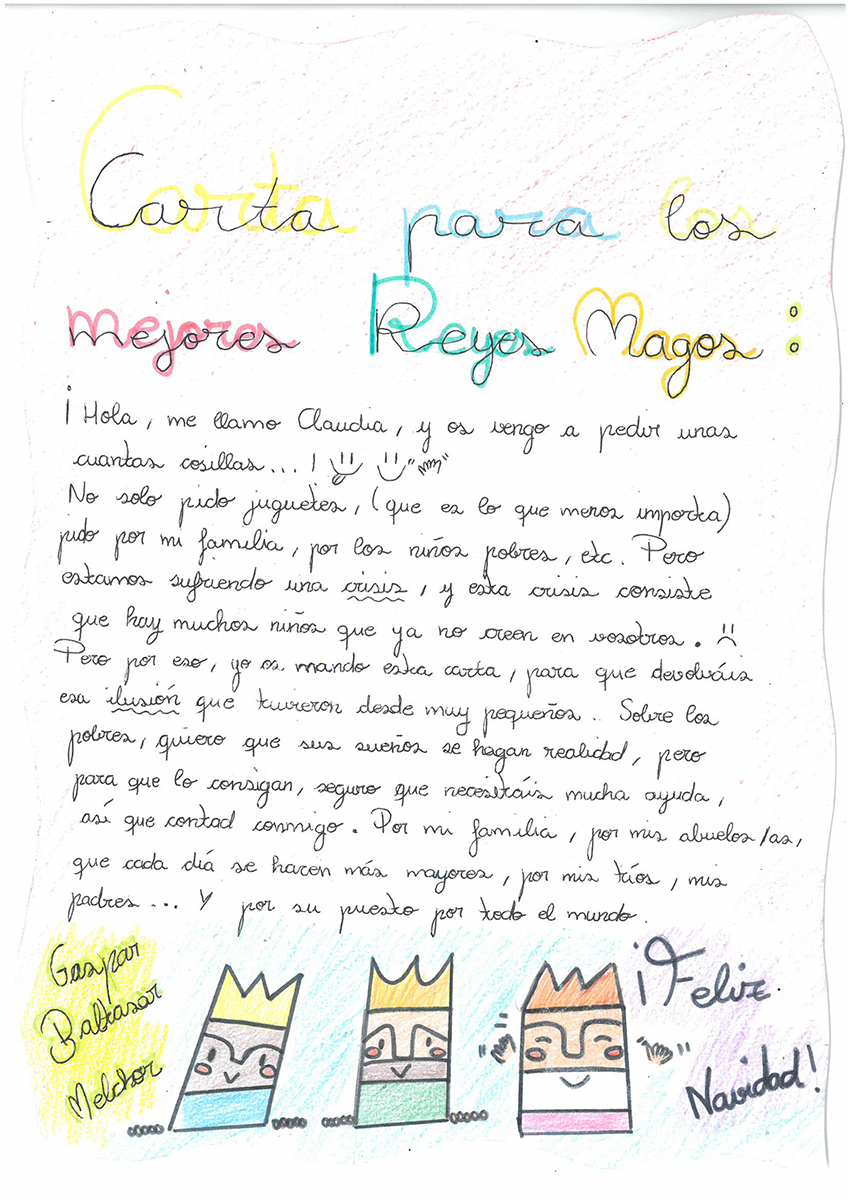 Carta para los
mejores Reyes Magos:
¡Hola, me llamo Claudia, y os vengo a pedir unas
cuantas cosillas...!
No solo pido juguetes, (que es lo que menos importa)
pido por mi familia, por los niños pobres, etc. Pero
estamos sufriendo una crisis, y esta crisis consiste
que hay muchos niños que ya no creen en vosotros.
Pero por eso, yo os mando esta carta, para que devolváis
esa ilusión que tuvieron desde muy pequeños.. Sobre los
pobres, quiero que sus sueños se hagan realidad, pero
para que lo consigan, seguro que necesitáis mucha ayuda,
así que contad conmigo. Por mi familia, por mis abuelos/as,
que cada diá se hacen más mayores, por mis tíos, mis
padres... Y por su puesto por todo el mundo.
Gaspar
Baltasar
Melchor
¡Feliz
Navidad!